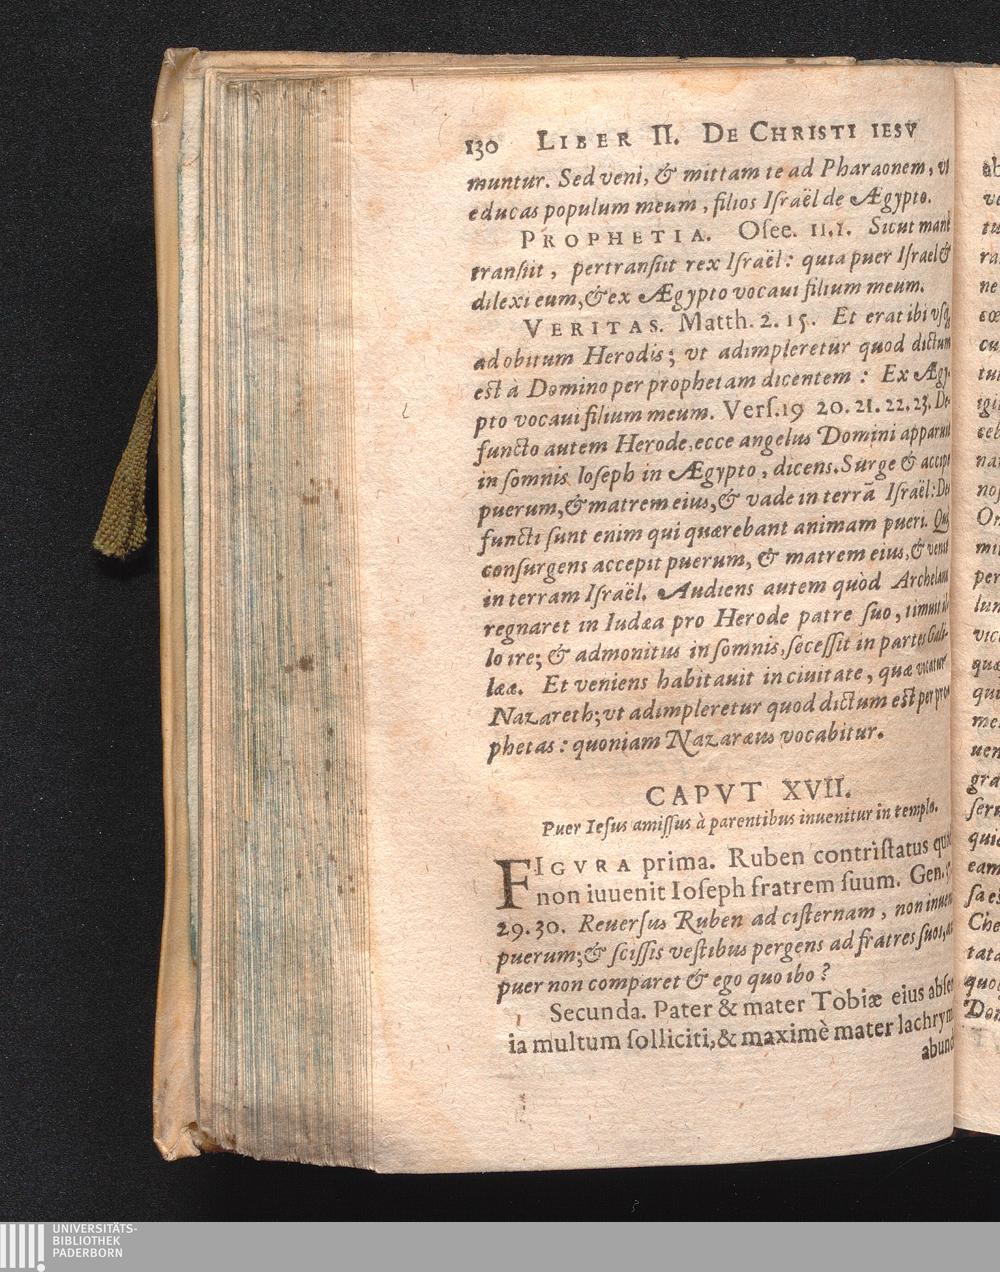 130 LIBER II. DE CHRISTI IESV
muntur. Sed veni, & mittam te ad Pharaonem, vt
educas populum meum, filios Iſraël de Ægypto.
PROPHETIA. Oſee. 11.1. Sicut mane
tranſiit, pertranſiit rex Iſraël: quia puer Iſrael &
dilexi eum, & ex Ægypto vocaui filium meum.
VERITAS. Matth. 2. 15. Et erat ibi vſq,
ad obitum Herodis; vt adimpleretur quod dictum
eſt à Domino per prophetam dicentem: Ex Ægy-
pto vocaui filium meum. Verſ.19 20.21.22.23. De-
functo autem Herode, ecce angelus Domini apparuit
in ſomnis Ioſeph in Ægypto, dicens. Surge & accipe
puerum, & matrem eius, & vade in terrā Iſraël: De-
functi ſunt enim qui quærebant animam pueri. Qui
conſurgens accepit puerum, & matrem eius, & venit
in terram Iſraël. Audiens autem quòd Archelaus
regnaret in Iudæa pro Herode patre ſuo, timuit il-
lo ire; & admonitus in ſomnis, ſeceſſit in partes Gali-
lææ. Et veniens habitauit in ciuitate, quæ vocatur
Nazareth; vt adimpleretur quod dictum eſt per pro-
phetas: quoniam Nazaræus vocabitur.
CAPVT XVII.
Puer Ieſus amiſſus à parentibus inuenitur in templo.
FIGVRA prima. Ruben contriſtatus quia
non iuuenit Ioſeph fratrem ſuum. Gen.
29.30. Reuerſus Ruben ad ciſternam, non inuenit
puerum; & ſciſſis veſtibus pergens ad fratres ſuos,
puer non comparet & ego quo ibo?
Secunda. Pater & mater Tobiæ eius abſen
ia multum ſolliciti, & maximè mater lachrym
abund
ab
ve
tu
ra
ne
cu
per
lun
vic
quæ
qui
me
uen
gra
ſeru
quia
eam
ſa es
Che
tata
quod
Dom
UNIVERSITÄTS-
BIBLIOTHEK
PADERBORN